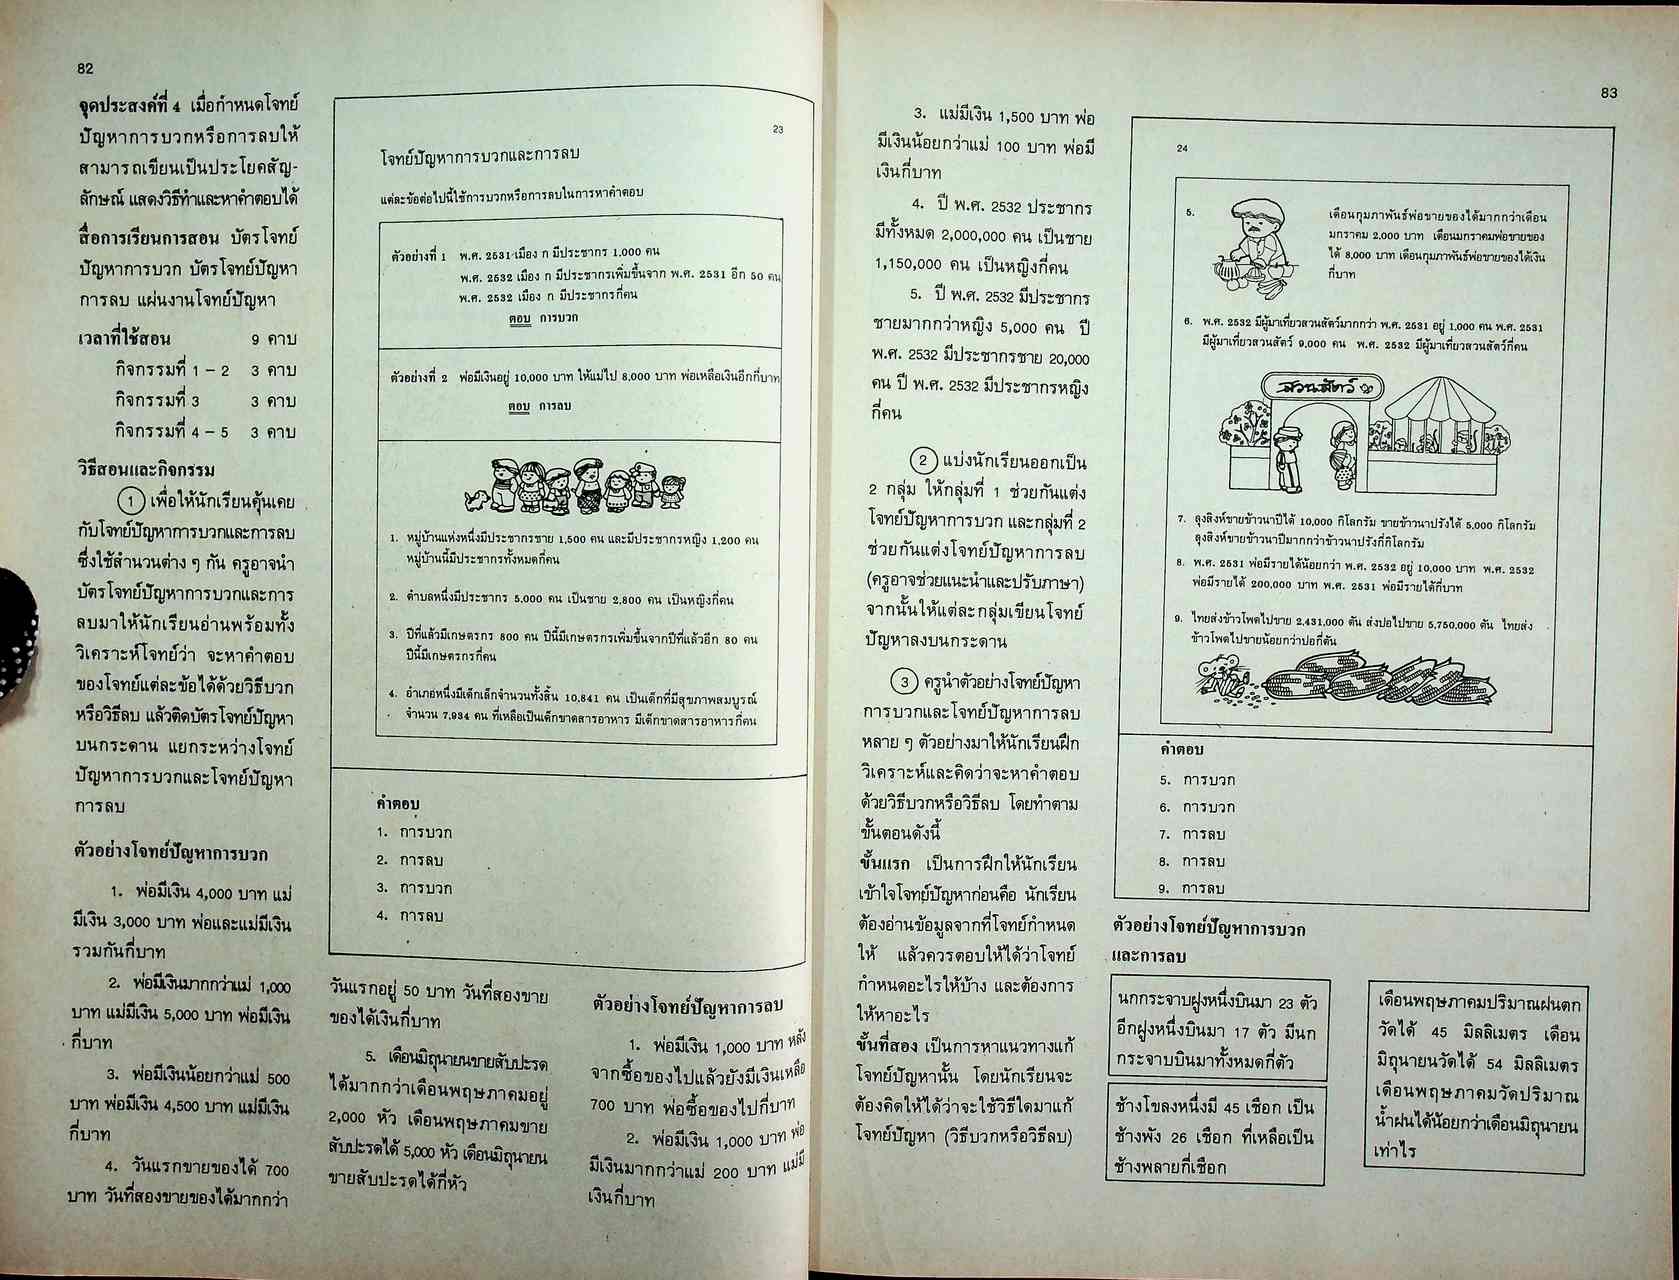 82
จุดประสงค์ที่ 4 เมื่อกำหนดโจทย์
ปัญหาการบวกหรือการลบให้
สามารถเขียนเป็นประโยคสัญ-
ลักษณ์ แสดงวิธีทำและหาคำตอบได้
สื่อการเรียนการสอน บัตรโจทย์
ปัญหาการบวก บัตรโจทย์ปัญหา
การลบ แผ่นงานโจทย์ปัญหา
เวลาที่ใช้สอน 9 คาบ
กิจกรรมที่ 1 – 2 3 คาบ
กิจกรรมที่ 3 3 คาบ
กิจกรรมที่ 4 – 5 3 คาบ
วิธีสอนและกิจกรรม
1 เพื่อให้นักเรียนคุ้นเคย
กับโจทย์ปัญหาการบวกและการลบ
ซึ่งใช้สำนวนต่าง ๆ กัน ครูอาจนำ
บัตรโจทย์ปัญหาการบวกและการ
ลบมาให้นักเรียนอ่านพร้อมทั้ง
วิเคราะห์โจทย์ว่า จะหาคำตอบ
ของโจทย์แต่ละข้อได้ด้วยวิธีบวก
หรือวิธีลบ แล้วติดบัตรโจทย์ปัญหา
บนกระดาน แยกระหว่างโจทย์
ปัญหาการบวกและโจทย์ปัญหา
การลบ
ตัวอย่างโจทย์ปัญหาการบวก
1. พ่อมีเงิน 4,000 บาท แม่
มีเงิน 3,000 บาท พ่อและแม่มีเงิน
รวมกันกี่บาท
2. พ่อมีเงินมากกว่าแม่ 1,000
บาท แม่มีเงิน 5,000 บาท พ่อมีเงิน
กี่บาท
3. พ่อมีเงินน้อยกว่าแม่ 500
บาท พ่อมีเงิน 4,500 บาท แม่มีเงิน
กี่บาท
4. วันแรกขายของได้ 700
บาท วันที่สองขายของได้มากกว่า
23
โจทย์ปัญหาการบวกและการลบ
แต่ละข้อต่อไปนี้ใช้การบวกหรือการลบในการหาคำตอบ
ตัวอย่างที่ 1 พ.ศ. 2531 เมือง ก มีประชากร 1,000 คน
พ.ศ. 2532 เมือง ก มีประชากรเพิ่มขึ้นจาก พ.ศ. 2531 อีก 50 คน
พ.ศ. 2532 เมือง ก มีประชากรกี่คน
ตอบ การบวก
ตัวอย่างที่ 2 พ่อมีเงินอยู่ 10,000 บาท ให้แม่ไป 8,000 บาท พ่อเหลือเงินอีกกี่บาท
ตอบ การลบ
1. หมู่บ้านแห่งหนึ่งมีประชากรชาย 1,500 คน และมีประชากรหญิง 1,200 คน
หมู่บ้านนี้มีประชากรทั้งหมดกี่คน
2. ตำบลหนึ่งมีประชากร 5,000 คน เป็นชาย 2,800 คน เป็นหญิงกี่คน
3. ปีที่แล้วมีเกษตรกร 800 คน ปีนี้มีเกษตรกรเพิ่มขึ้นจากปีที่แล้วอีก 80 คน
ปีนี้มีเกษตรกรกี่คน
4. อำเภอหนึ่งมีเด็กเล็กจำนวนทั้งสิ้น 10,841 คน เป็นเด็กที่มีสุขภาพสมบูรณ์
จำนวน 7,934 คน ที่เหลือเป็นเด็กขาดสารอาหาร มีเด็กขาดสารอาหารกี่คน
คำตอบ
1. การบวก
2. การลบ
3. การบวก
4. การลบ
วันแรกอยู่ 50 บาท วันที่สองขาย
ของได้เงินกี่บาท
5. เดือนมิถุนายนขายสับปะรด
ได้มากกว่าเดือนพฤษภาคมอยู่
2,000 หัว เดือนพฤษภาคมขาย
สับปะรดได้ 5,000 หัว เดือนมิถุนายน
ขายสับปะรดได้กี่หัว
ตัวอย่างโจทย์ปัญหาการลบ
1. พ่อมีเงิน 1,000 บาท หลัง
จากซื้อของไปแล้วยังมีเงินเหลือ
700 บาท พ่อซื้อของไปกี่บาท
2. พ่อมีเงิน 1,000 บาท พ่อ
มีเงินมากกว่าแม่ 200 บาท แม่มี
เงินกี่บาท
83
3. แม่มีเงิน 1,500 บาท พ่อ
มีเงินน้อยกว่าแม่ 100 บาท พ่อมี
เงินกี่บาท
4. ปี พ.ศ. 2532 ประชากร
มีทั้งหมด 2,000,000 คน เป็นชาย
1,150,000 คน เป็นหญิงกี่คน
5. ปี พ.ศ. 2532 มีประชากร
ชายมากกว่าหญิง 5,000 คน ปี
พ.ศ. 2532 มีประชากรชาย 20,000
คน ปี พ.ศ. 2532 มีประชากรหญิง
กี่คน
2 แบ่งนักเรียนออกเป็น
2 กลุ่ม ให้กลุ่มที่ 1 ช่วยกันแต่ง
โจทย์ปัญหาการบวก และกลุ่มที่ 2
ช่วยกันแต่งโจทย์ปัญหาการลบ
(ครูอาจช่วยแนะนำและปรับภาษา)
จากนั้นให้แต่ละกลุ่มเขียนโจทย์
ปัญหาลงบนกระดาน
3 ครูนำตัวอย่างโจทย์ปัญหา
การบวกและโจทย์ปัญหาการลบ
หลาย ๆ ตัวอย่างมาให้นักเรียนฝึก
วิเคราะห์และคิดว่าจะหาคำตอบ
ด้วยวิธีบวกหรือวิธีลบ โดยทำตาม
ขั้นตอนดังนี้
ขั้นแรก เป็นการฝึกให้นักเรียน
เข้าใจโจทย์ปัญหาก่อนคือ นักเรียน
ต้องอ่านข้อมูลจากที่โจทย์กำหนด
ให้ แล้วควรตอบให้ได้ว่าโจทย์
กำหนดอะไรให้บ้าง และต้องการ
ให้หาอะไร
ขั้นที่สอง เป็นการหาแนวทางแก้
โจทย์ปัญหานั้น โดยนักเรียนจะ
ต้องคิดให้ได้ว่าจะใช้วิธีใดมาแก้
โจทย์ปัญหา (วิธีบวกหรือวิธีลบ)
24
5. เดือนกุมภาพันธ์พ่อขายของได้มากกว่าเดือน
มกราคม 2,000 บาท เดือนมกราคมพ่อขายของ
ได้ 8,000 บาท เดือนกุมภาพันธ์พ่อขายของได้เงิน
กี่บาท
6. พ.ศ. 2532 มีผู้มาเที่ยวสวนสัตว์มากกว่า พ.ศ. 2531 อยู่ 1,000 คน พ.ศ. 2531
มีผู้มาเที่ยวสวนสัตว์ 9,000 คน พ.ศ. 2532 มีผู้มาเที่ยวสวนสัตว์กี่คน
สวนสัตว์
7. ลุงสิงห์ขายข้าวนาปีได้ 10,000 กิโลกรัม ขายข้าวนาปรังได้ 5,000 กิโลกรัม
ลุงสิงห์ขายข้าวนาปีมากกว่าข้าวนาปรังกี่กิโลกรัม
8. พ.ศ. 2531 พ่อมีรายได้น้อยกว่า พ.ศ. 2532 อยู่ 10,000 บาท พ.ศ. 2532
พ่อมีรายได้ 200,000 บาท พ.ศ. 2531 พ่อมีรายได้กี่บาท
9. ไทยส่งข้าวโพดไปขาย 2,431,000 ตัน ส่งปอไปขาย 5,750,000 ตัน ไทยส่ง
ข้าวโพดไปขายน้อยกว่าปอกี่ตัน
คำตอบ
5. การบวก
6. การบวก
7. การลบ
8. การลบ
9. การลบ
ตัวอย่างโจทย์ปัญหาการบวก
และการลบ
นกกระจาบฝูงหนึ่งบินมา 23 ตัว
อีกฝูงหนึ่งบินมา 17 ตัว มีนก
กระจาบบินมาทั้งหมดกี่ตัว
ช้างโขลงหนึ่งมี 45 เชือก เป็น
ช้างพัง 26 เชือก ที่เหลือเป็น
ช้างพลายกี่เชือก
เดือนพฤษภาคมปริมาณฝนตก
วัดได้ 45 มิลลิเมตร เดือน
มิถุนายนวัดได้ 54 มิลลิเมตร
เดือนพฤษภาคมวัดปริมาณ
น้ำฝนได้น้อยกว่าเดือนมิถุนายน
เท่าไร